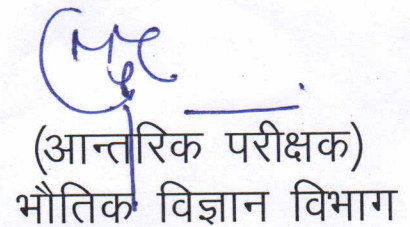 (आन्तरिक परीक्षक)
भौतिक विज्ञान विभाग